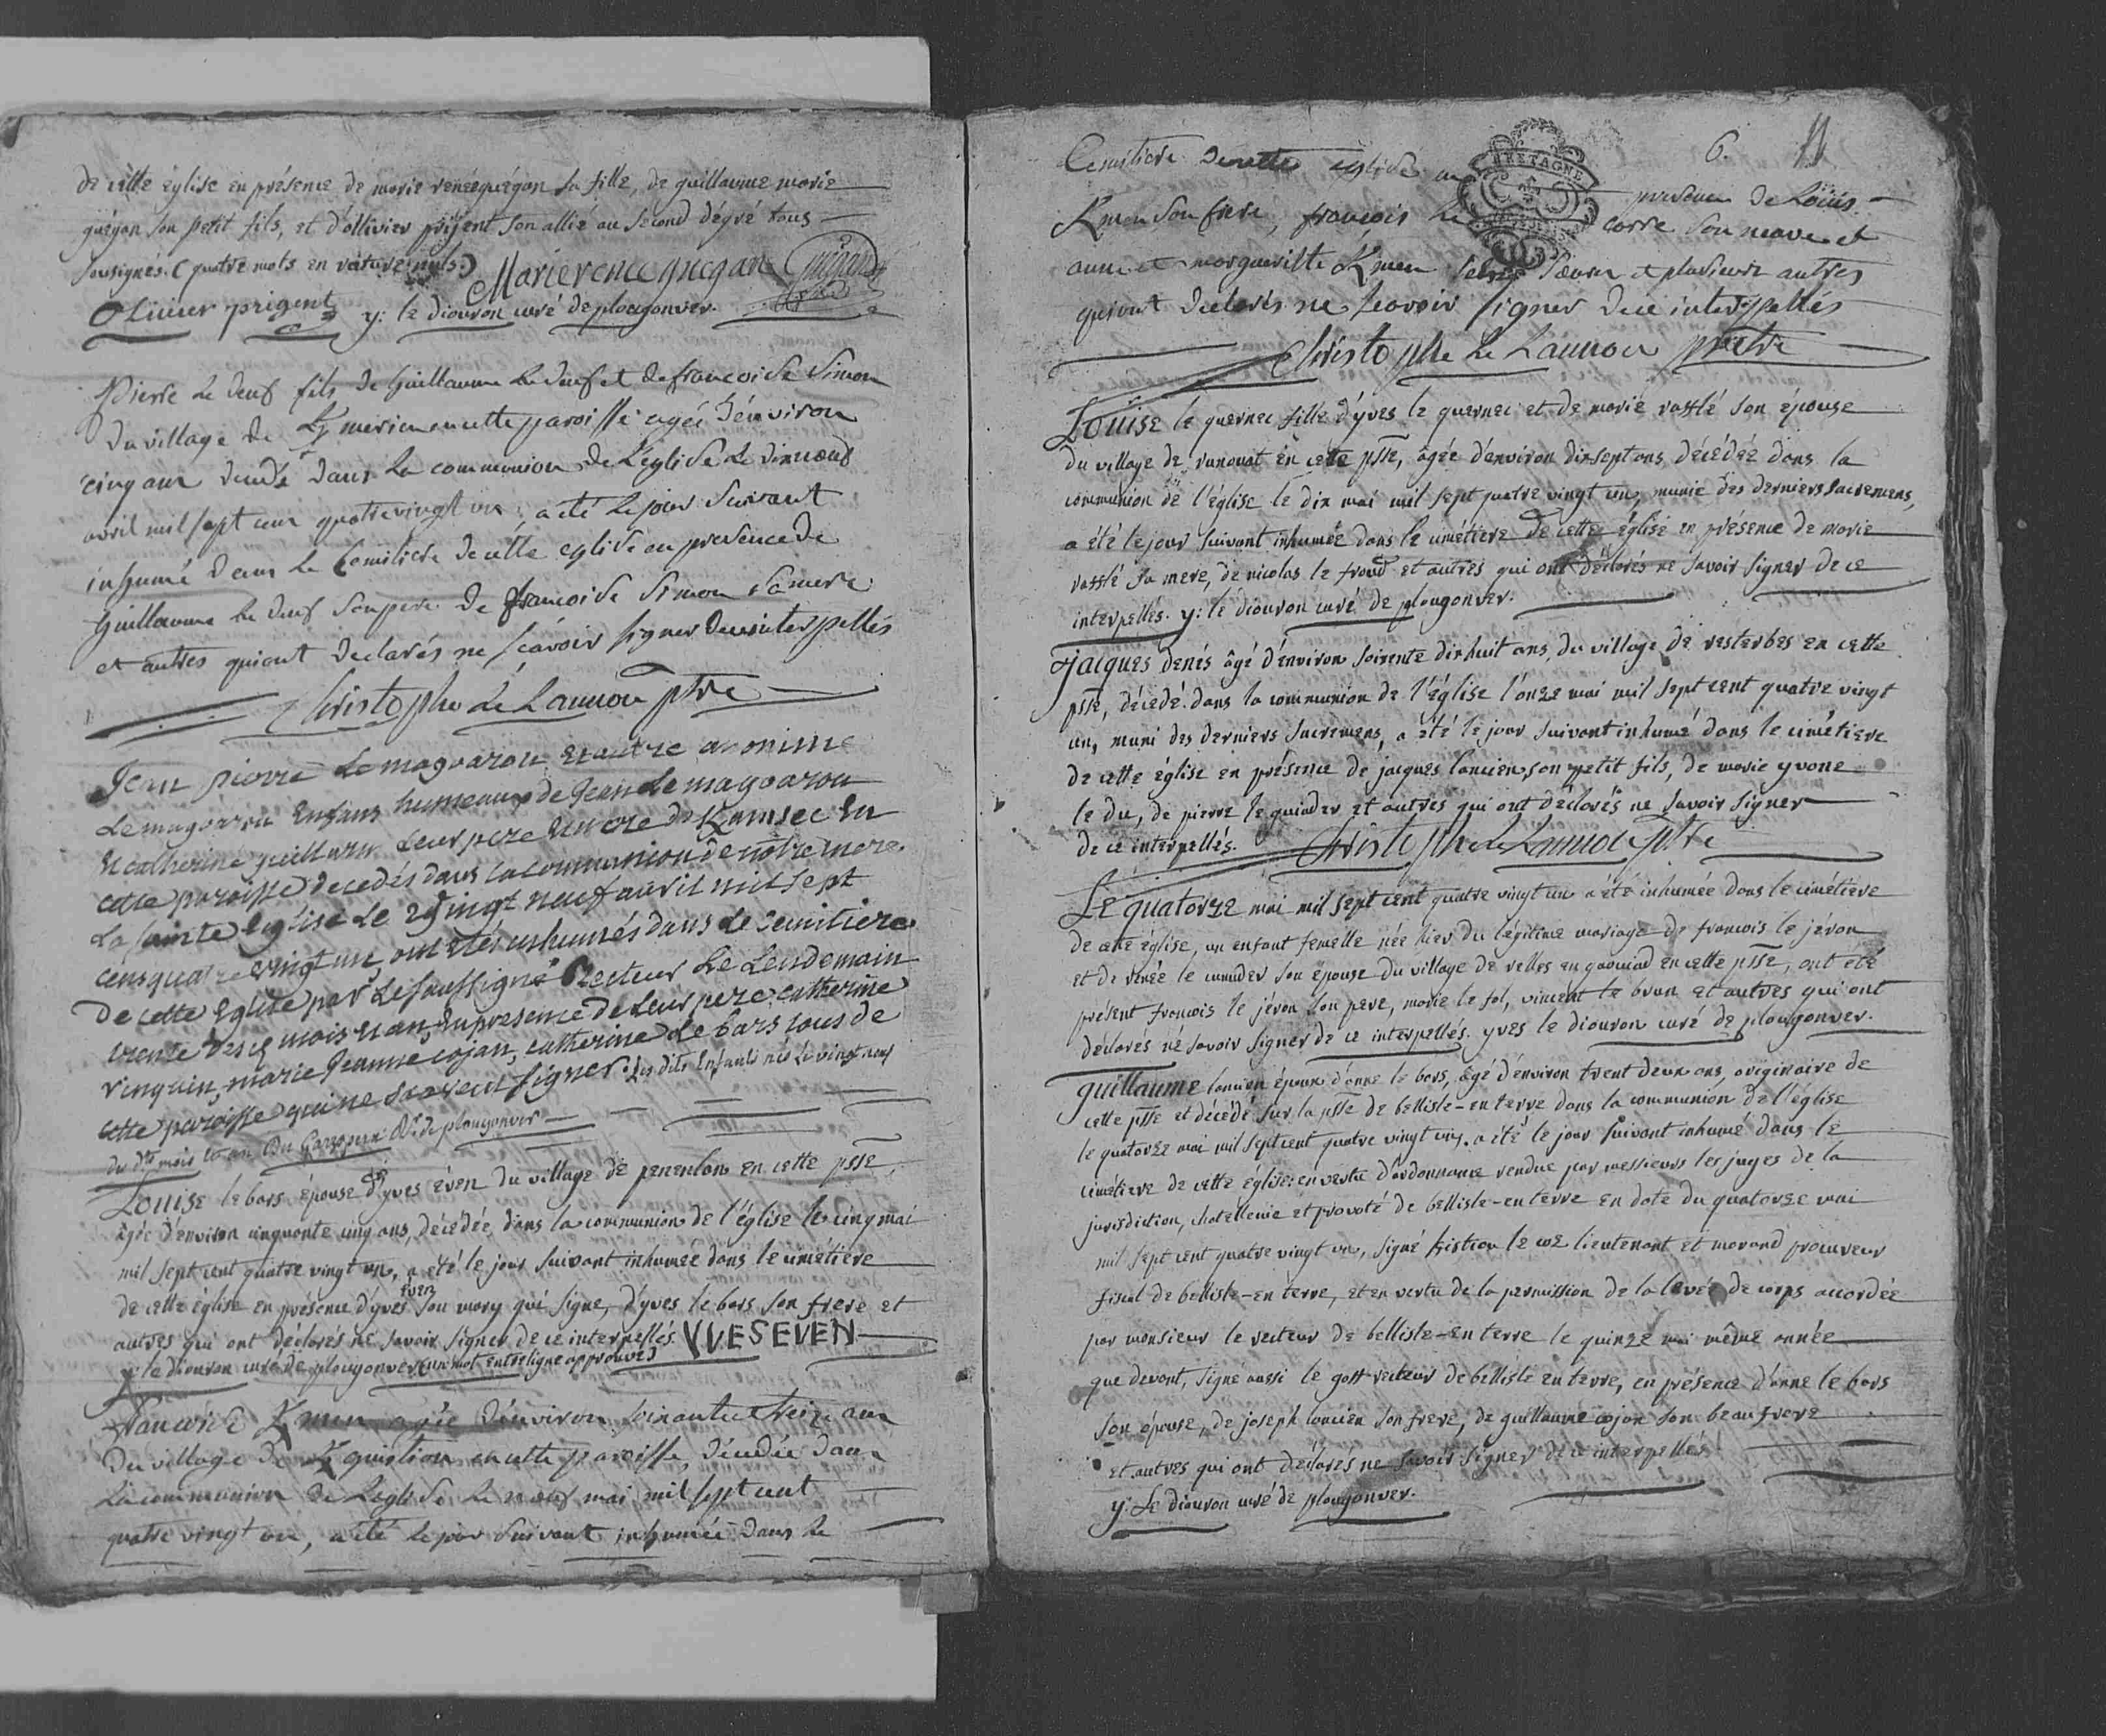 de cette église en présence de marie renée guégan sa fille, de guillaume marie
guégan son petit fils, et d'ollivier prijent son allié au second dégré tous
sousignés. (quatre mots en rature nuls.) Marie renee guegan Guégan
Olivier prigent y: le diouron curé de plougonver.
Pierre le deuf fils de Guillaume le deuf et de francoise Simon
du village de Kmerien en cette paroisse agé d'environ
cinq ans decedé dans la communion de l'eglise le dixneuf
avril mil sept cens quatrevingt un, a été le jour suivant
inhumé dans le Cemitiere de cette eglise en presence de
Guillaume le deuf son pere de francoise Simon sa mere
et autres qui ont declarés ne scavoir signer de ce interpellés
Christophe Le Launou ptre
Jean pierre Le magoarou et autre anonime
Le magoarou Enfans humeaux de Jean Le magoarou
et catherine guillaum Leur pere et mere de Kamsec En
cette paroisse decedés dans la communion de notre mere
La sainte Eglise Le vingt neuf avril mil sept
cens quatre vingt un, ont etés inhumés dans Le Cemitiere
De cette Eglise par Le soussigné Recteur Le Lendemain
trente desd. mois et an, En presence de Leur pere, catherine
vinquin, marie Jeanne cojan, catherine Le bars tous de
cette paroisse qui ne scavent signer. Les dits Enfants nés Le vingt neuf
du dt. mois et an Du Garzpern Rr. de plougonver
Louise le bars épouse d'yves éven du village de penenlan en cette psse,
âgée d'environ cinquante cinq ans, décédée, dans la communion de l'église le cinq mai
mil sept cent quatre vingt un, a été le jour suivant inhumée dans le cimétiere
de cette église en présence d'yves éven son mary qui signe, d'yves le bars son frere et
autres qui ont déclarés ne savoir signer de ce interpellés. YVES EVEN
y: le diouron curé de plougonver (un mot entreligne approuvé)
Francoise Kmen agée d'environ soixante treize ans
du village de Kguistion en cette paroisse, decedée dans
la communion de L'eglise le neuf mai mil sept cent
quatre vingt un, a été le jour suivant inhumée dans le
6.
Cemitiere de cette eglise en presence de Louis
BRETAGNE
Kmen son frere, francois le corre son neveu et
anne et marguerite Kmen ses soeurs et plusieurs autres
qui ont declarés ne scavoir signer de ce interpellés
Christophe Le Launou prêtre
Louise le guernec fille d'yves le guernec et de marie rasslé son épouse
du village de runouat en cette psse, âgée d'environ dixsept ans, décédée dans la
communion de l'église le dix mai mil sept quatre vingt un, munie des derniers sacremens,
a été le jour suivant inhumée dans le cimétiere de cette église en présence de marie
rasslé sa mere, de nicolas le froud et autres qui ont déclarés ne savoir signer de ce
interpellés. y: le diouron curé de plougonver.
jacques denés âgé d'environ soixente dixhuit ans, du village de resterbes en cette
psse, décédé dans la communion de l'église l'onze mai mil sept cent quatre vingt
un, muni des derniers sacremens, a été le jour suivant inhumé dans le cimétiere
de cette église en présence de jacques lancien son petit fils, de marie yvone
le du, de pierre le guiader et autres qui ont déclarés ne savoir signer
de ce interpellés. Christophe Le Launou Ptre
Le quatorze mai mil sept cent quatre vingt un a été inhumée dans le cimétiere
de cette église, un enfant femelle née hier du légitime mariage de francois le jéron
et de renée le cunuder son épouse du village de relles en gaouiad en cette psse, ont été
présent francois le jéron son pere, marie le fol, vincent le brun et autres qui ont
déclarés né savoir signer de ce interpellés. yves le diouron curé de plougonver.
guillaume lancien époux d'anne le bars, âgé d'environ trent deux ans, originaire de
cette psse et décédé sur la psse de bellisle-en terre dans la communion de l'église
le quatorze mai mil sept cent quatre vingt un, a été le jour suivant inhumé dans le
cimétiere de cette église: en vertu d'ordonnance rendue par messieurs les juges de la
jurisdiction, chatellenie et prevoté de bellisle-en terre en date du quatorze mai
mil sept cent quatre vingt un, signé histiou le coz lieutenant et morand procureur
fiscal de bellisle-en terre, et en vertu de la permission de la lévée de corps accordée
par monsieur le recteur de bellisle-en terre le quinze mai même année
que devant, signé aussi le goff recteur de bellisle en terre, en présence d'anne le bars
son épouse, de joseph lancien son frere, de guillaume cojan son beau frere
et autres qui ont déclarés ne savoir signer de ce interpellés.
y: Le diouron curé de plougonver.